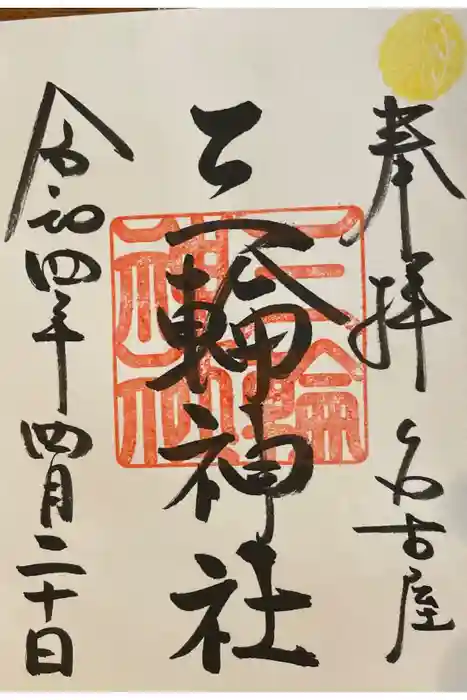 奉拝 名古屋
三輪神社
令和四年四月二十日
三輪
神社